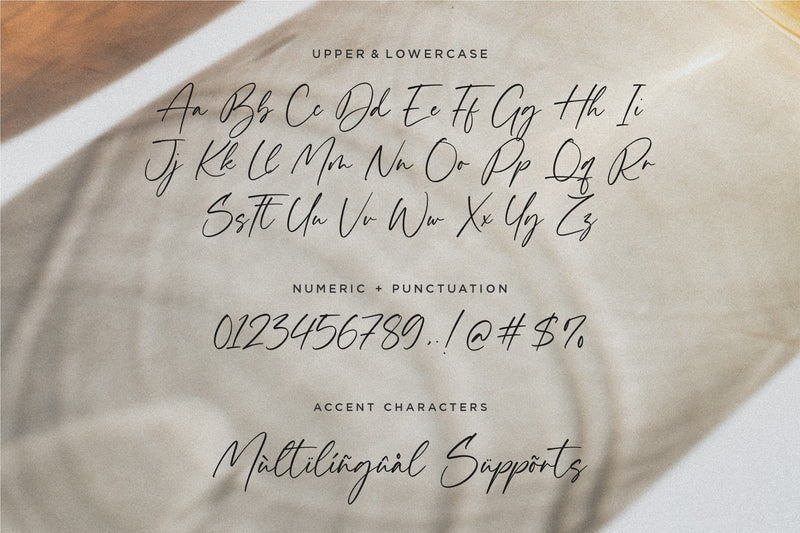 UPPER & LOWERCASE
Aa Bb Cc Dd Ee Ff Gg Hh Ii
Jj Kk Ll Mm Nn Oo Pp Qq Rr
Ss Tt Uu Vv Ww Xx Yy Zz
NUMERIC + PUNCTUATION
0123456789,.!@#$%
ACCENT CHARACTERS
Mùltïlíñgûål Süppõrts